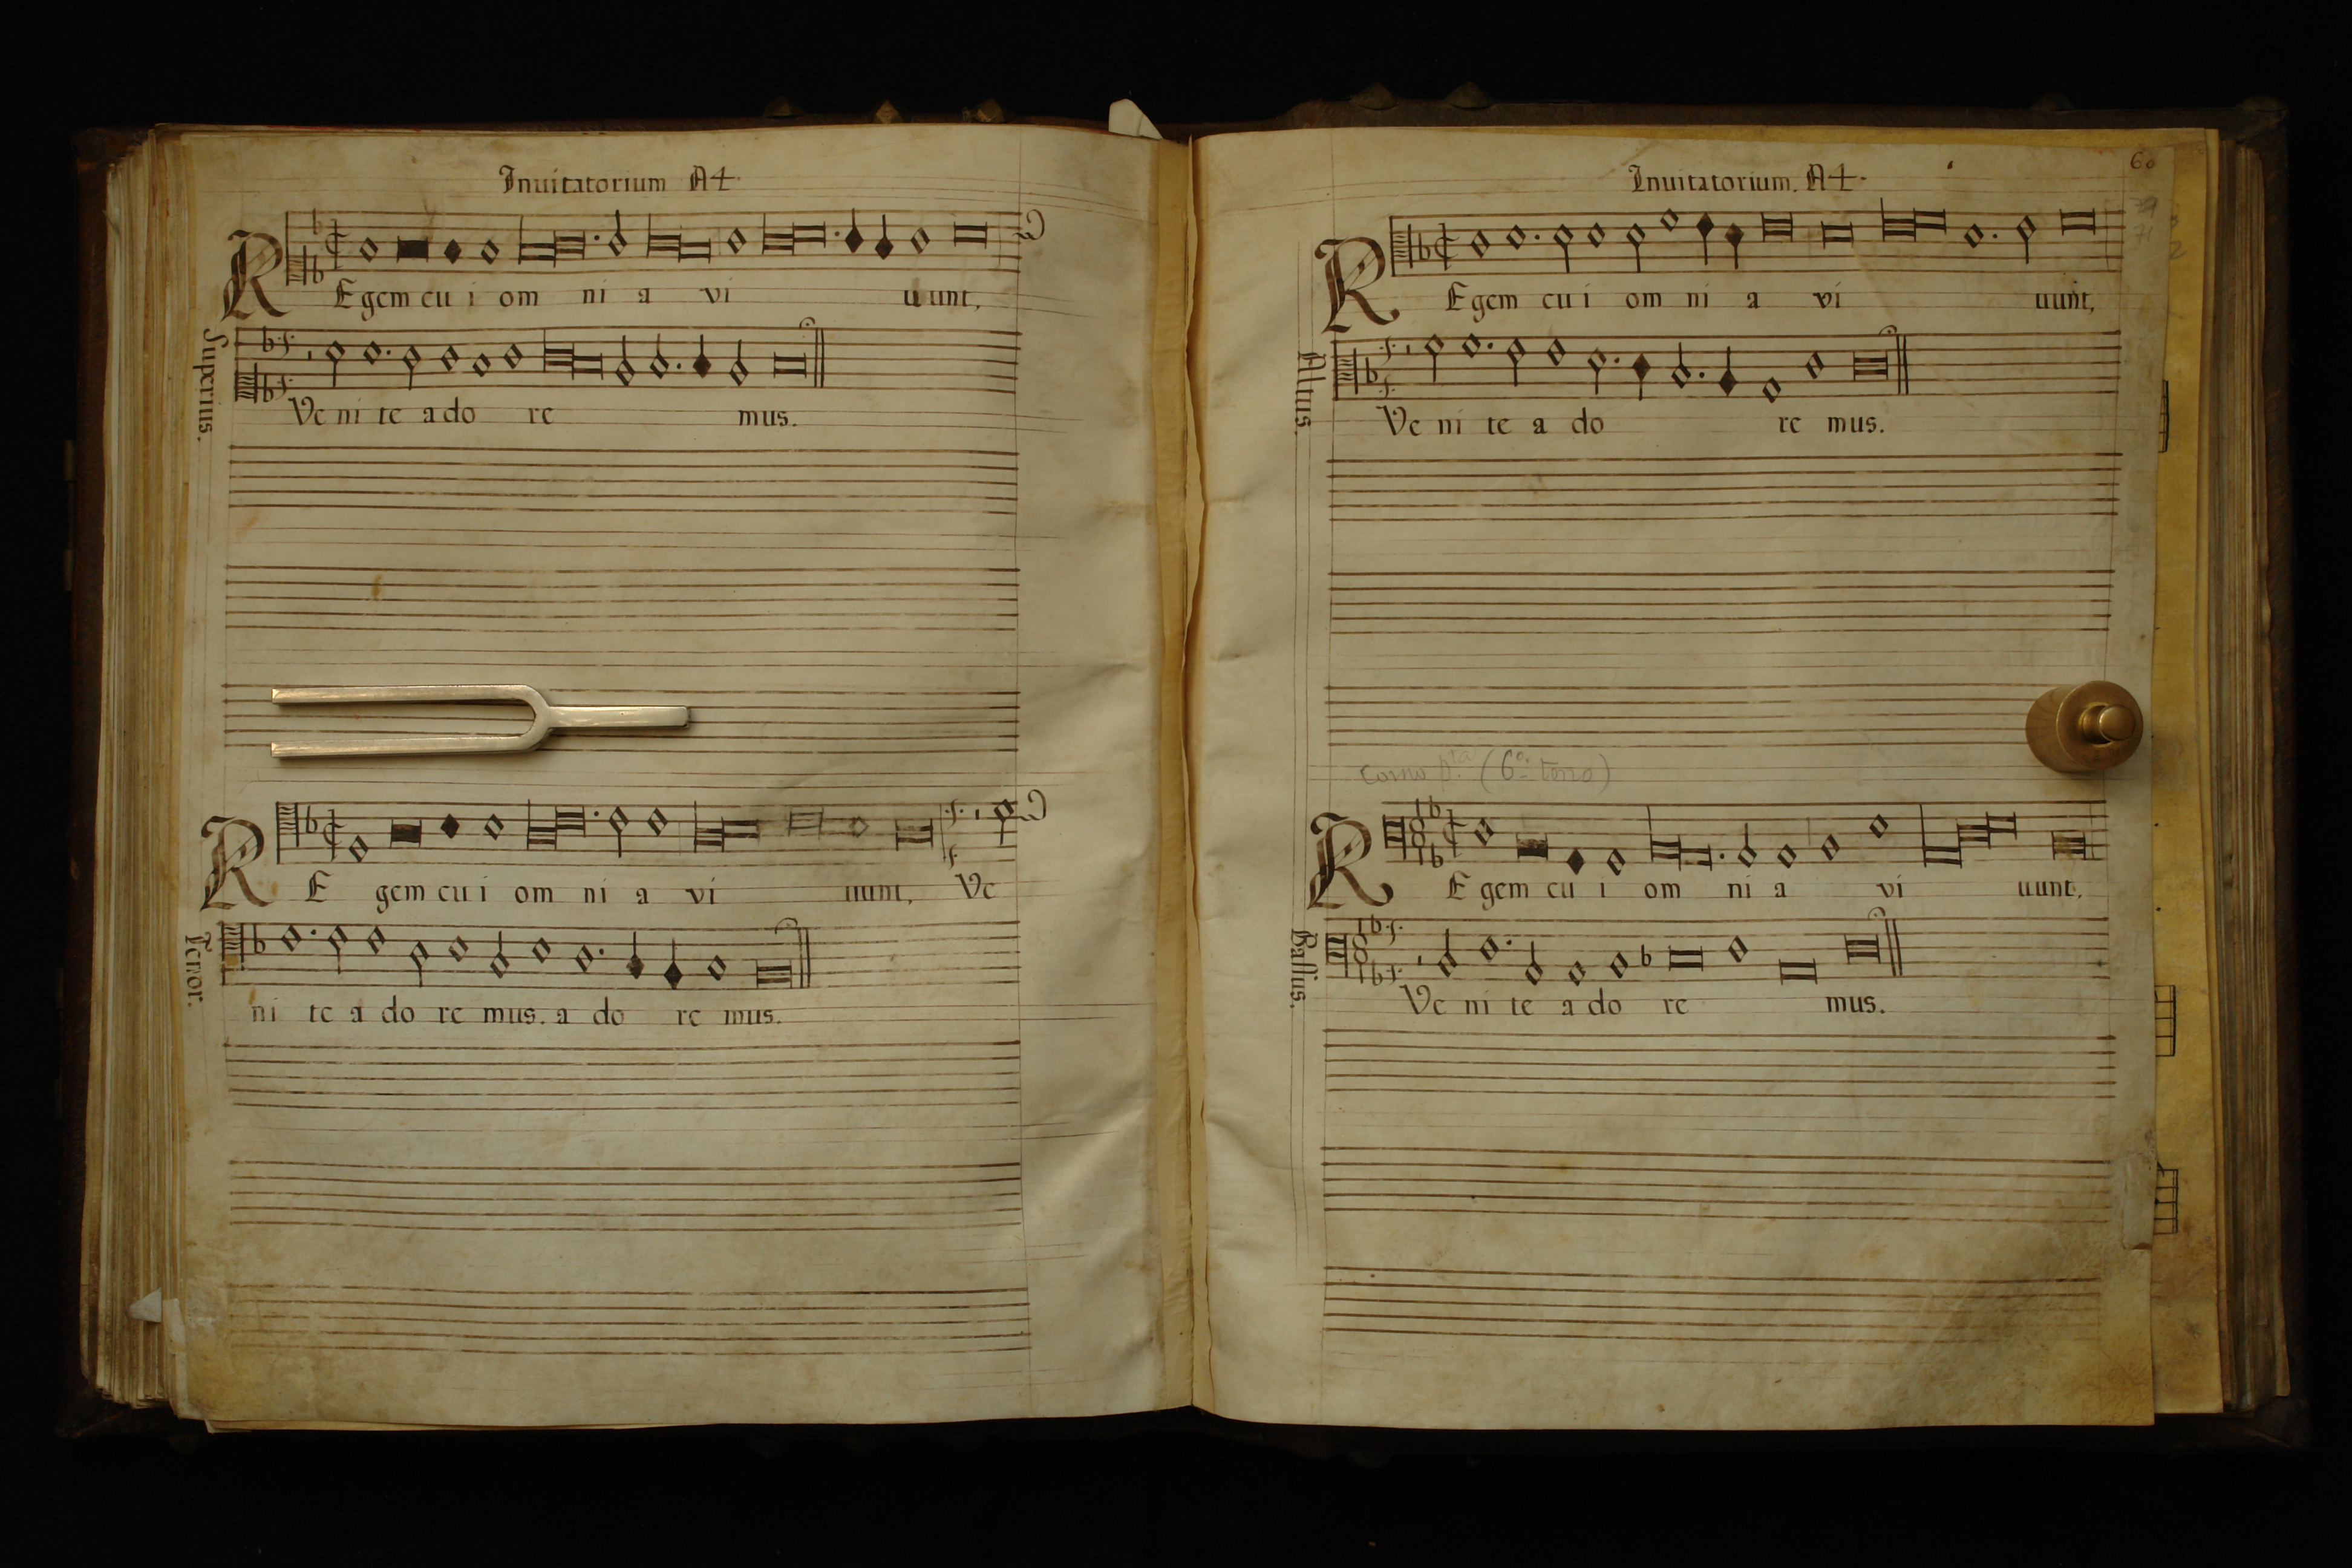 Inuitatorium A4.
REgem cu i om ni a vi uunt,
Superius.
Ve ni te a do re mus.
RE gem cu i om ni a vi uunt, Ve
Tenor.
ni te a do re mus. a do re mus.
60
Inuitatorium. A4.
REgem cu i om ni a vi uunt,
Altus.
Ve ni te a do re mus.
(6º tono)
REgem cu i om ni a vi uunt,
Bassus.
Ve ni te a do re mus.